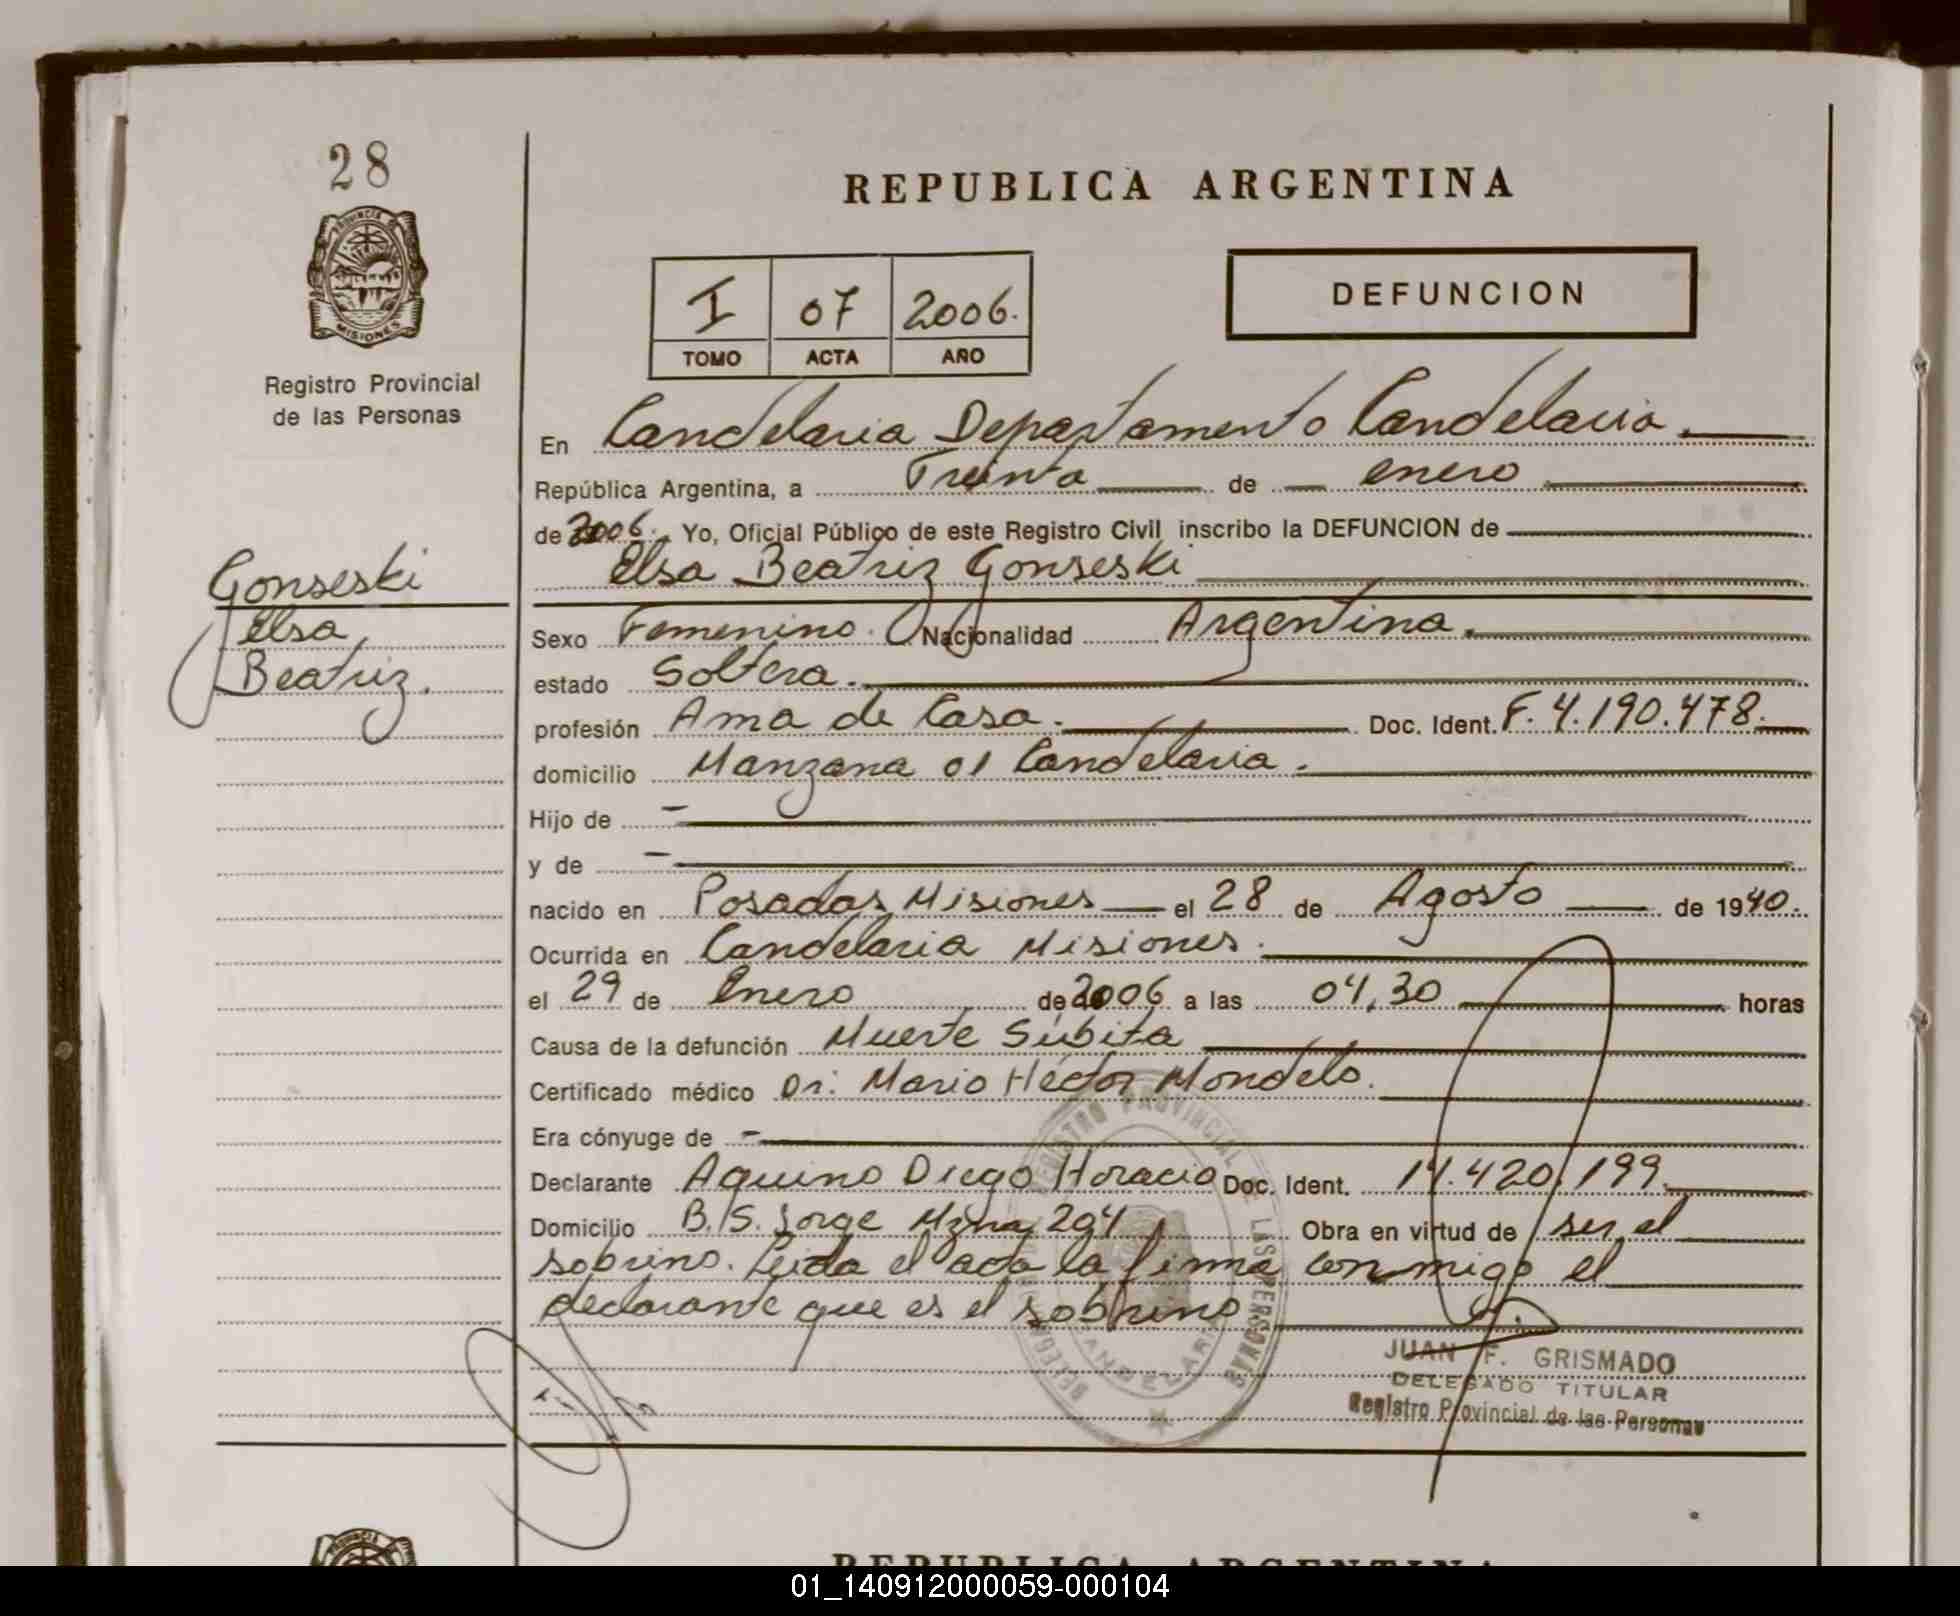 28
PROVINCIA DE
MISIONES
Registro Provincial
de las Personas
REPUBLICA ARGENTINA
I 07 2006.
TOMO ACTA AÑO
DEFUNCION
En Candelaria Departamento Candelaria.
República Argentina, a Treinta de enero
de 2006. Yo, Oficial Público de este Registro Civil inscribo la DEFUNCION de
Elsa Beatriz Gonseski
Gonseski
Elsa
Beatriz.
Sexo Femenino. Nacionalidad Argentina.
estado Soltera.
profesión Ama de Casa. Doc. Ident. F. 4.190.478.
domicilio Manzana 01 Candelaria.
Hijo de -
y de -
nacido en Posadas Misiones el 28 de Agosto de 1940.
Ocurrida en Candelaria Misiones.
el 29 de Enero de 2006 a las 04,30 horas
Causa de la defunción Muerte Súbita
Certificado médico Dr. Mario Héctor Mondelo.
Era cónyuge de -
Declarante Aquino Diego Horacio Doc. Ident. 14.420.199.
Domicilio B. S. Jorge Mzna 204 Obra en virtud de ser el
sobrino. Leida el acta la firma conmigo el
declarante que es el sobrino
REGISTRO PROVINCIAL DE LAS PERSONAS
CANDELARIA
JUAN F. GRISMADO
DELEGADO TITULAR
Registro Provincial de las Personas
REPUBLICA ARGENTINA
01_140912000059-000104